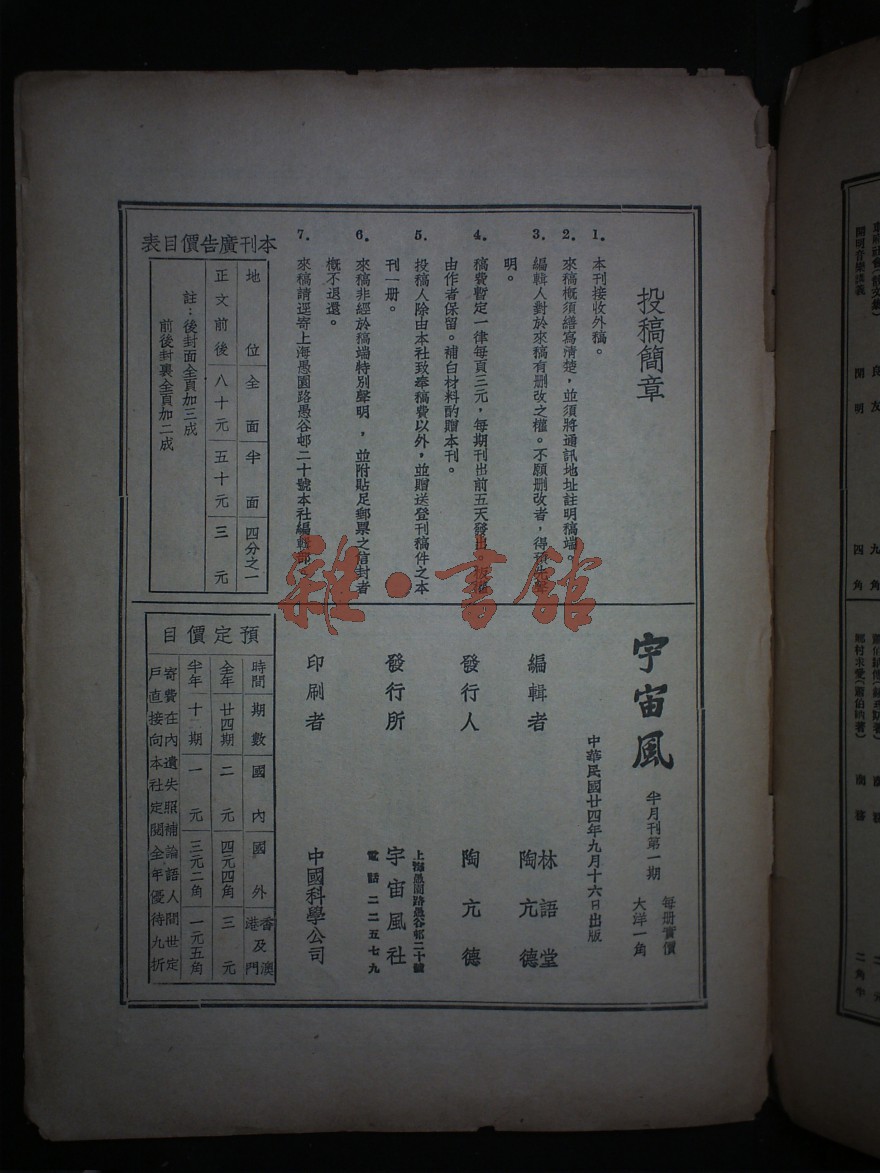 投稿簡章
1. 本刊接收外稿。
2. 來稿概須繕寫清楚，並須將通訊地址註明稿端。
3. 編輯人對於來稿有刪改之權。不願刪改者，得預先聲
明。
4. 稿費暫定一律每頁三元，每期刊出前五天發出。版權
由作者保留。補白材料酌贈本刊。
5. 投稿人除由本社致奉稿費以外，並贈送登刊稿件之本
刊一册。
6. 來稿非經於稿端特別聲明，並附貼足郵票之信封者
概不退還。
7. 來稿請逕寄上海愚園路愚谷邨二十號本社編輯部
本刊廣告價目表
地位 全面 半面 四分之一
正文前後 八十元 五十元 三元
註：後封面全頁加三成
前後封裏全頁加二成
宇宙風 半月刊第一期 每册實價
大洋一角
中華民國廿四年九月十六日出版
編輯者 林語堂
陶亢德
發行人 陶亢德
發行所 宇宙風社
上海愚園路愚谷邨二十號
電話二二五七九
印刷者 中國科學公司
預定價目
時間 期數 國內 國外 香港及澳門
全年 廿四期 二元 四元四角 三元
半年 十二期 一元 三元二角 一元五角
寄費在內遺失照補論語人間世定
戶直接向本社定閱全年優待九折
雜·書館
開明音樂講義 開明 四角
良友 九角